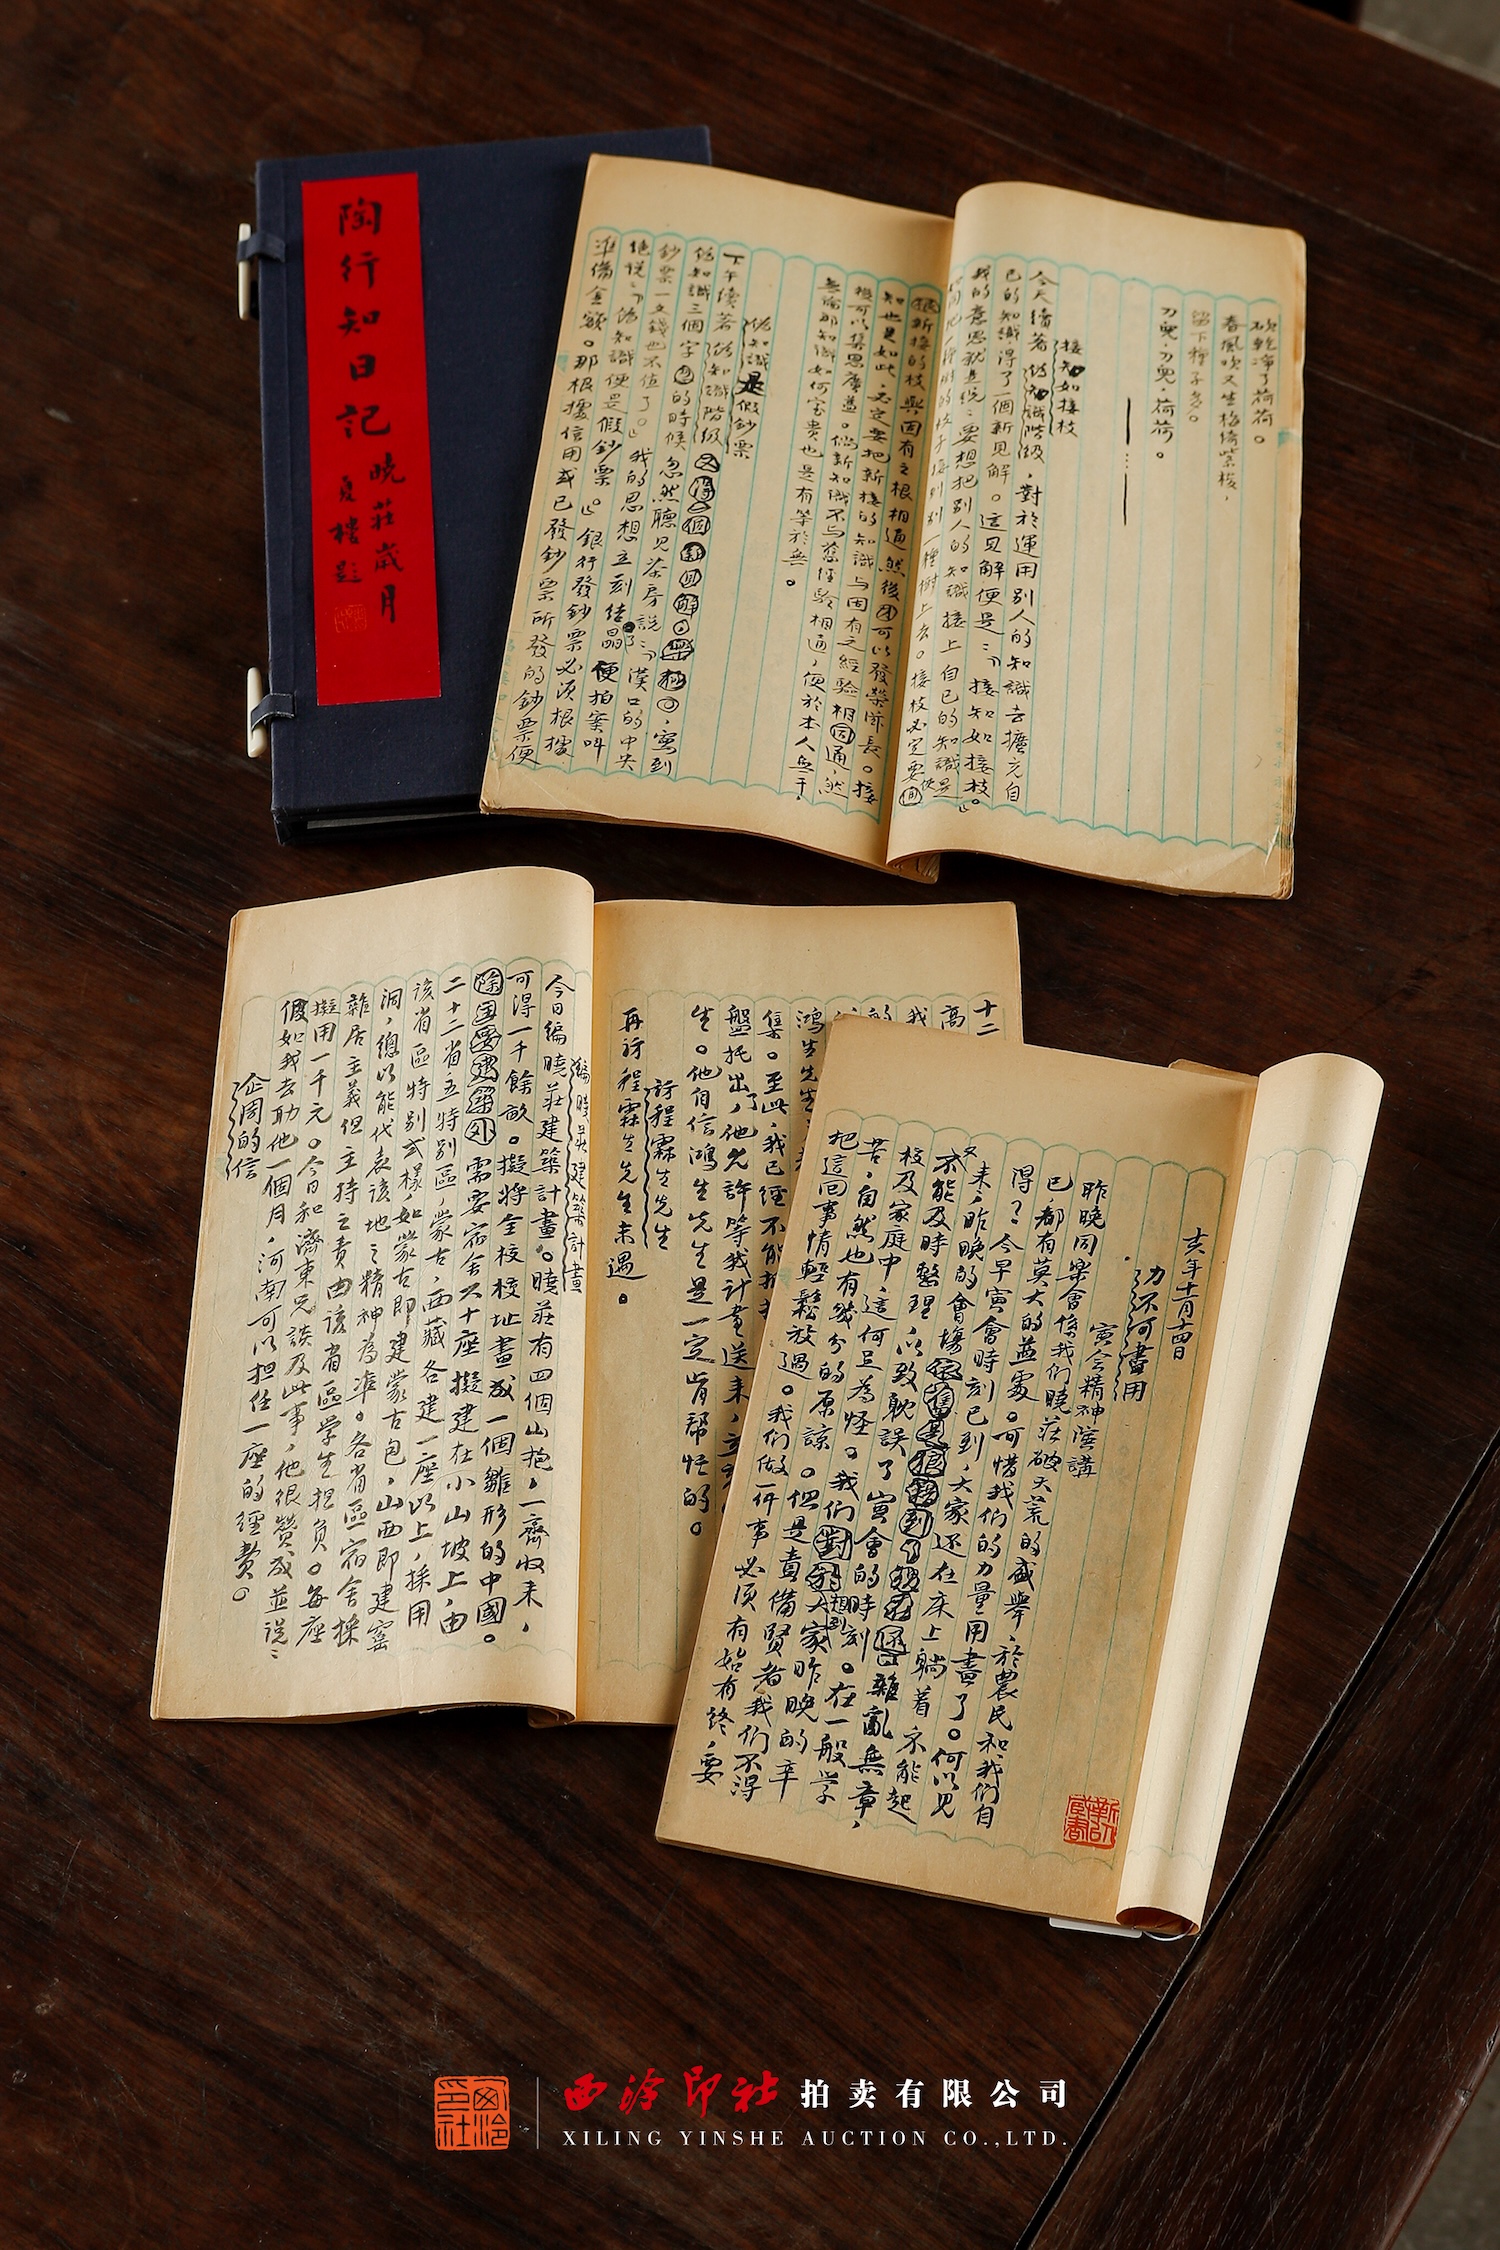 陶行知日記
曉莊歲月
夏樓題
砍乾淨了荷荷。
春風吹又生
留下種子多。
刀兒，刀兒，荷荷。
接知如接枝
今天續著偽知識階級，對於運用別人的知識去擴充自
已的知識，得了一個新見解。這見解便是：「接知如接枝。」
我的意思就是說：要想把別人的知識接上自已的知識是
接到別一種樹上去。接枝必定要
新接的枝與固有之根相通然後才可以發榮滋長。接
知也是如此，必定要把新接的知識与固有之經驗相通，然
後可以集思廣益。倘新知識不与舊經驗相通，便於本人無干，
無論那知識如何宝贵也是有等於無。
偽知識是假鈔票
下午續著偽知識階級又得一個新見解，寫到
偽知識三個字的時候忽然聽見茶房說：「漢口的中央
鈔票一文錢也不值了。」我的思想立刻结晶便拍案叫
絕説：「偽知識便是假鈔票。」銀行發鈔票必須根據
準備金額。那根據信用或已發鈔票所發的鈔票便
十二
高
我
鴻生先生
集。至此，我已經不能
盤托出了，他允許等我計畫送来，
生。他自信鴻生先生是一定肯幫忙的。
訪程霖生先生
再訪程霖生先生未遇。
編曉莊建築計畫
今日編曉莊建築計畫。曉莊有四個山抱，一齊收来，
可得一千餘畝。擬將全校校址畫成一個雛形的中國。
除主要建築外需要宿舍六十座擬建在小山坡上，由
二十二省五特別區，蒙古，西藏各建一座以上，採用
该省區特別式樣，如蒙古即建蒙古包，山西即建窰
洞，總以能代表該地之精神為準。各省區宿舍採
雜居主義但主持之责由該省區学生担負。每座
擬用一千元。今日和濟東兄談及此事，他很贊成並说：
假如我去助他一個月，河南可以担任一座的經費。
企周的信
亥年十一月十四日
力不可盡用
寅会精神演講
昨晚同樂會係我們曉莊破天荒的盛舉，於農民和我們自
已，都有莫大的益處。可惜我們的力量用盡了。何以見
得？今早寅會時刻已到，大家还在床上躺着不能起
来，昨晚的會場
又不能及時整理，以致耽誤了寅會的時刻。在一般学
雜亂無章，
校及家庭中，這何足為怪。我們對於大家昨晚的辛
苦，自然也有幾分的原諒。但是責備賢者我們不得
把這回事情輕鬆放過。我們做一件事必須有始有终，要
西泠印社
西泠印社拍卖有限公司
XILING YINSHE AUCTION CO.,LTD.